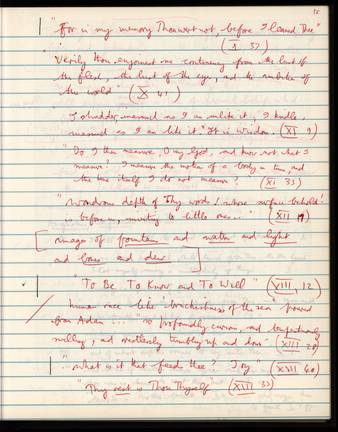 "For in my memory Thou wert not, before I learned Thee"
(X 37)
"Verily thou enjoinest me continency from the lust of
the flesh, the lust of the eye, and the ambition of
the world" (X 41)
I shudder, inasmuch as I am unlike it, I kindle,
inasmuch as I am like it. It is wisdom. (XI 9)
"Do I then measure, O my God, and know not what I
measure? I measure the motion of a body in time, and
the time itself I do not measure? (XI 33)
"Wondrous depth of Thy words! whose surface behold!
is before us, inviting to little ones ... (XII
images of fountain and and light
and and dew
"To Be To Know and To Will" (XIII, 12)
human race like "brackishness of the sea" poured
from Adam .... "so profoundly curious, and tempestuously
swelling, and restlessly tumbling up and down" (XIII 28)
"what is it that feeds thee? Joy" XIII 40)
"Thy rest is Thou Thyself" (XIII